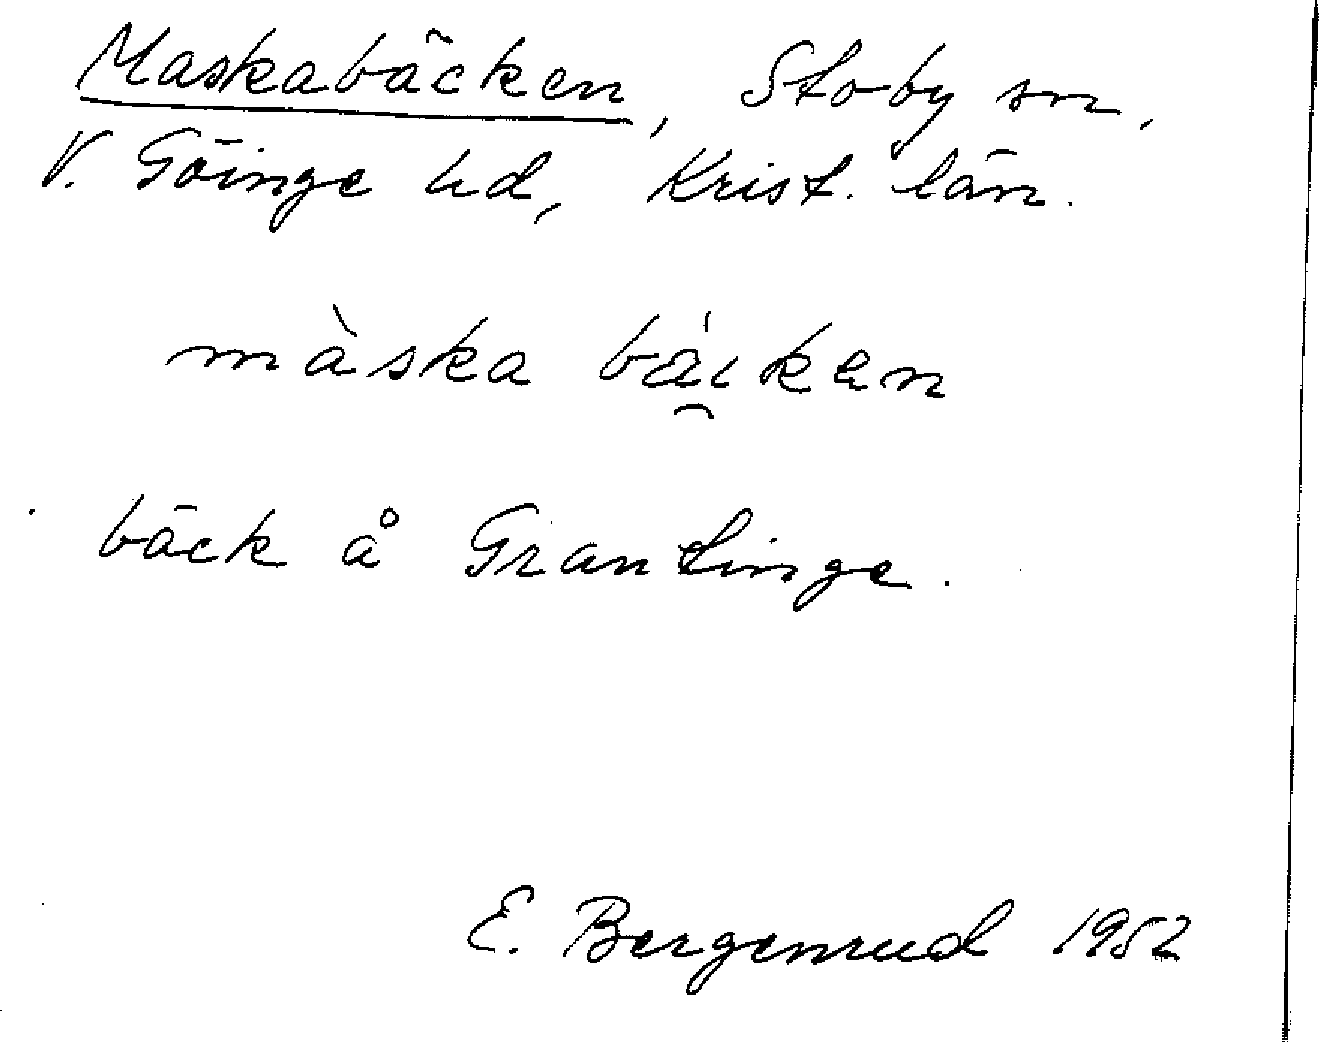 Maskabäcken, Stoby sn,
V. Göinge hd, Krist. län.
màska bäıken
bäck å Grantinge.
E. Bergenrud 1952